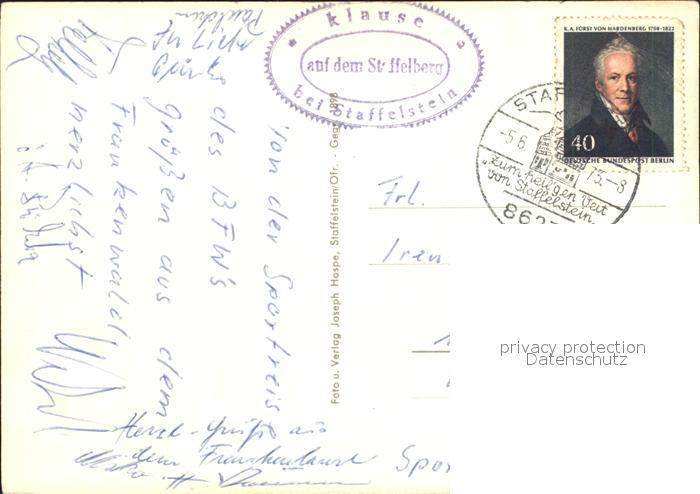 Von der Sportreise
des BFW's
grüßen aus dem
Frankenwald
herzlichst
Herzl. Grüße aus
dem Frankenland
klause
auf dem Staffelberg
bei Staffelstein
Foto u. Verlag Joseph Hospe, Staffelstein/Ofr. - Gegr. 1898
K.A. FÜRST VON HARDENBERG 1750-1822
40
DEUTSCHE BUNDESPOST BERLIN
STAF
-5.6.
75.-8
"Zum heiligen Veit
von Staffelstein
862
Frl.
Iren
Spo
privacy protection
Datenschutz